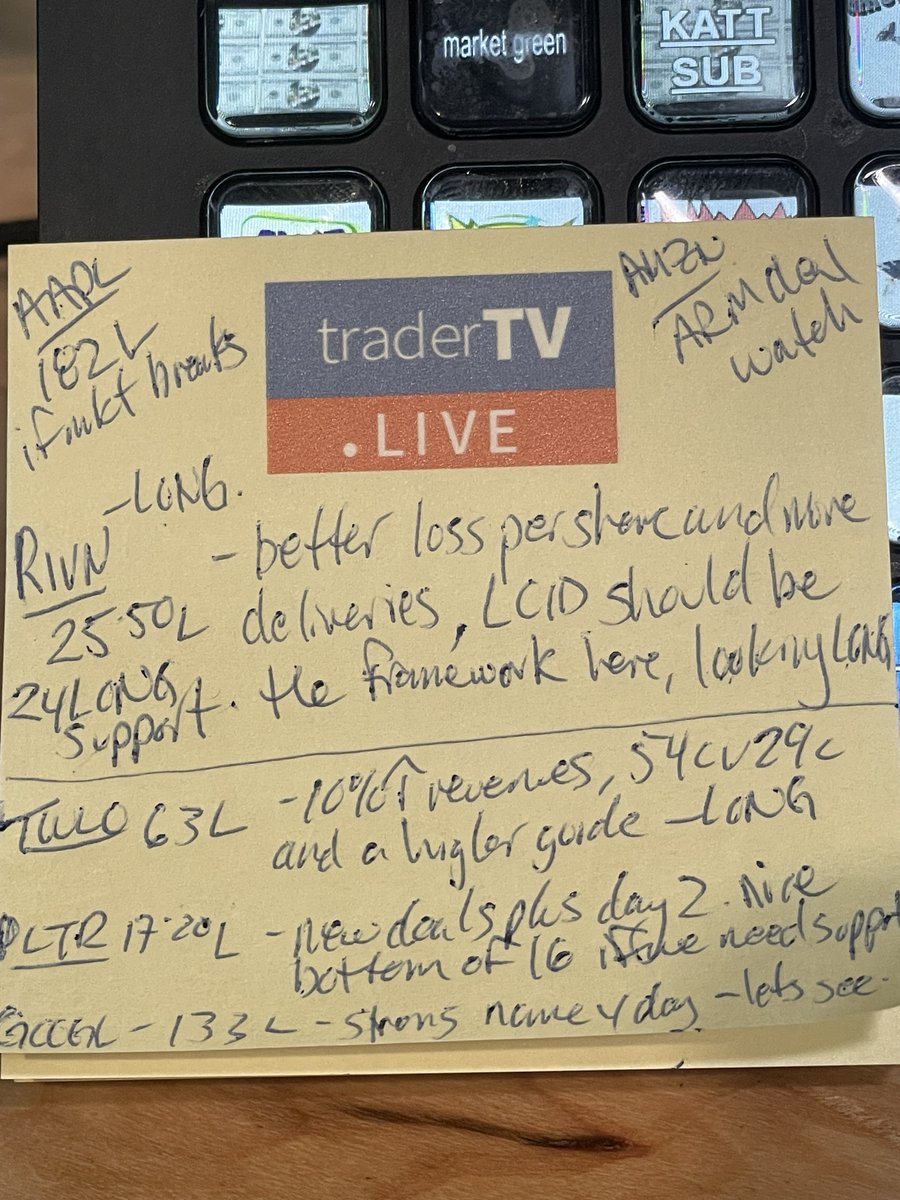 market green
KATT
SUB
AAPL
182L
if mkt breaks
traderTV
.LIVE
AMZN
ARM deal
watch
RIVN -LONG.
25.50L
24 LONG
support.
- better loss per share and more
deliveries, LCID should be
the framework here, looking LONG
TWLO 63L -10%↑ revenues, 54c v 29c
and a higher guide -LONG
PLTR 17.20L - new deals plus day 2. nice
bottom of 16 if we need support
GOOGL - 133L - strong name y day - lets see.